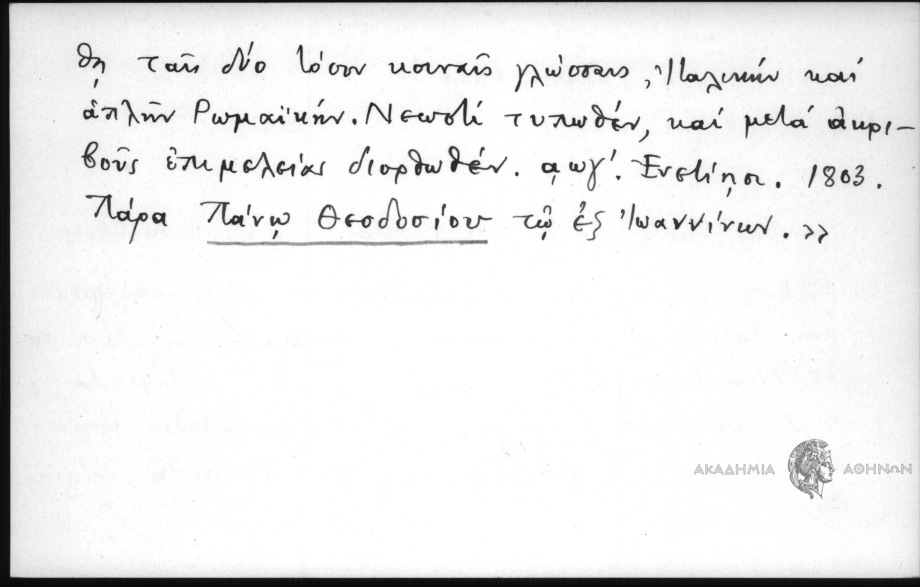 θῃ ταῖς δύο τόσον κοιναῖς γλώσσαις, Ἰταλικήν καί
ἁπλῆν Ῥωμαϊκήν. Νεωστί τυπωθέν, καί μετά ἀκρι-
βοῦς ἐπιμελείας διορθωθέν. ͵αωγ΄. Ἐνετίῃσι. 1803.
Πάρα Πάνῳ Θεοδοσίου τῷ ἐξ Ἰωαννίνων. »
ΑΚΑΔΗΜΙΑ ΑΘΗΝΩΝ